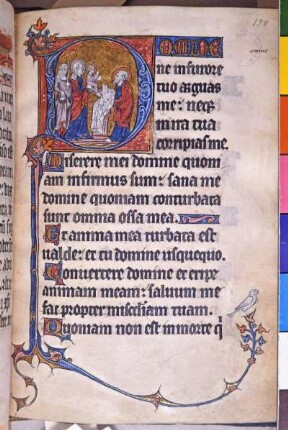 Domine
ne in furore
tuo arguas
me: neqz
in ira tua
corripias me.
Miserere mei domine quoni
am infirmus sum: sana me
domine quoniam conturbata
sunt omnia ossa mea.
Et anima mea turbata est
ualde: et tu domine usquequo.
Conuertere domine et eripe
animam meam: saluum me
fac propter misericordiam tuam.
Quoniam non est in morte q